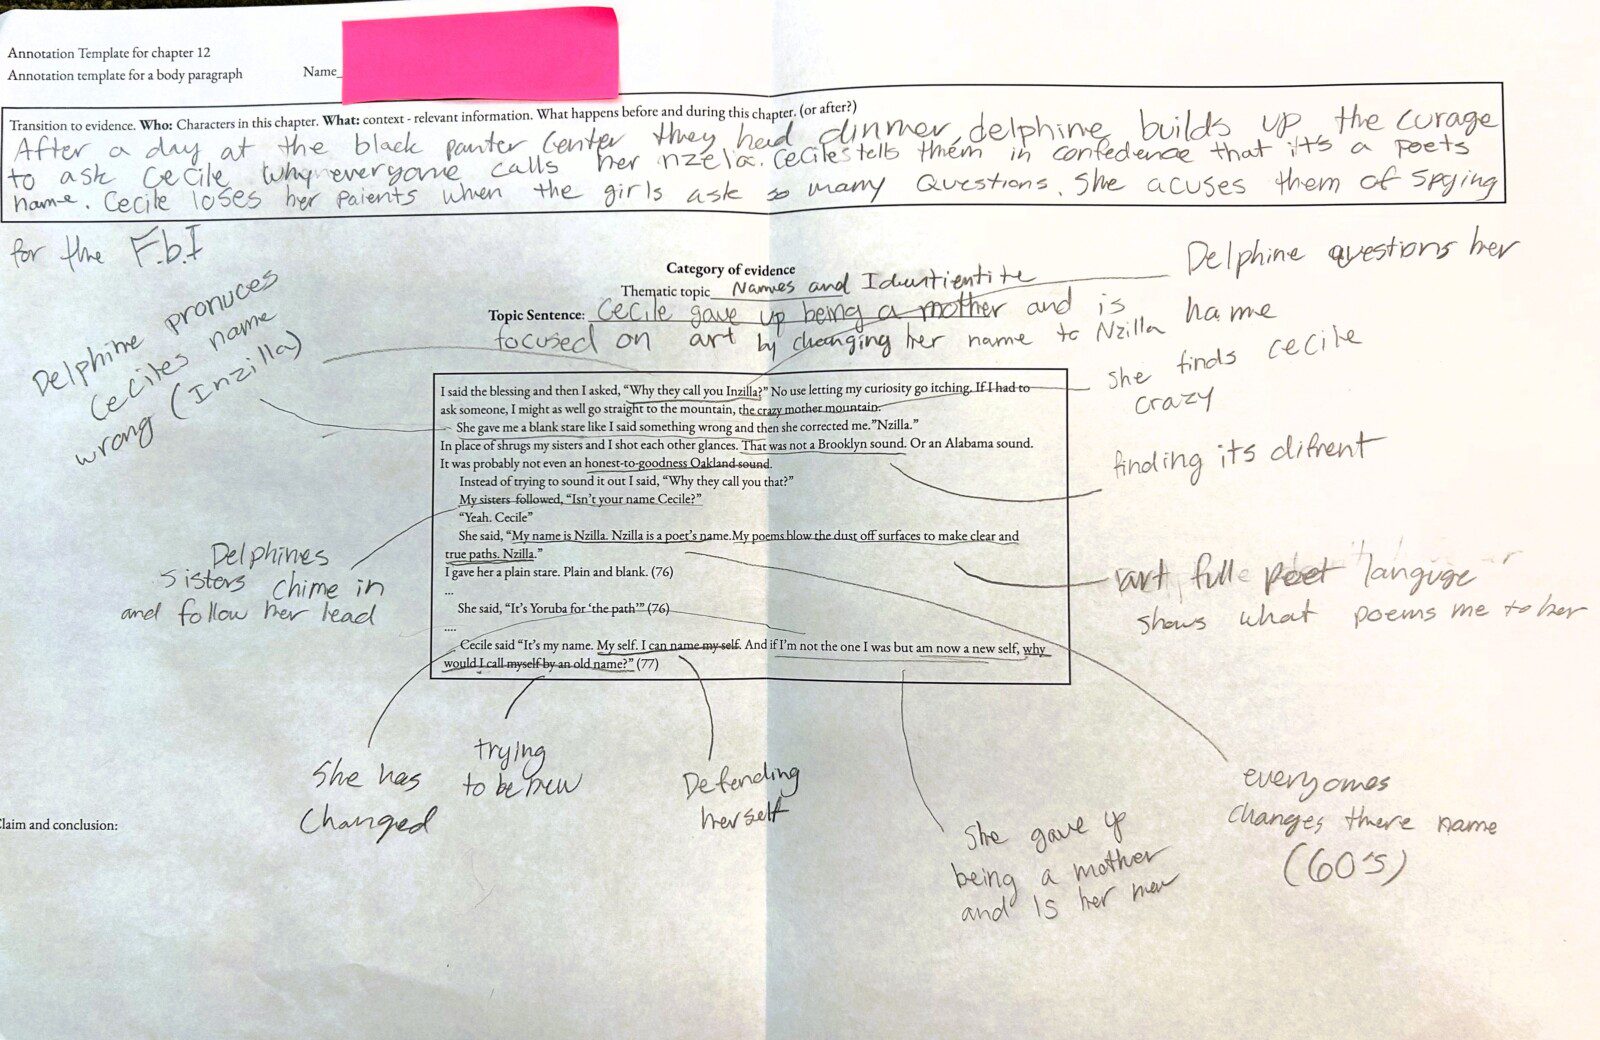 Annotation Template for chapter 12
Annotation template for a body paragraph Name_
Transition to evidence. Who: Characters in this chapter. What: context - relevant information. What happens before and during this chapter. (or after?)
After a day at the black panter Center they had dinmer, delphine builds up the curage
to ask Cecile why everyome calls her nzela. Cecile's tells them in confedence that it's a poets
name. Cecile loses her paients when the girls ask so many Questions. She acuses them of Spying
for the F.b.I
Category of evidence
Thematic topic Names and Identientite
Topic Sentence: Cecile gave up being a mother and is
focused on art by changing her name to Nzilla
Delphine questions her
name
Delphine pronuces
Ceciles name
wrong (Inzilla)
she finds cecile
crazy
finding its difrent
I said the blessing and then I asked, “Why they call you Inzilla?” No use letting my curiosity go itching. If I had to
ask someone, I might as well go straight to the mountain, the crazy mother mountain.
She gave me a blank stare like I said something wrong and then she corrected me.”Nzilla.”
In place of shrugs my sisters and I shot each other glances. That was not a Brooklyn sound. Or an Alabama sound.
It was probably not even an honest-to-goodness Oakland sound.
Instead of trying to sound it out I said, “Why they call you that?”
My sisters followed, “Isn’t your name Cecile?”
“Yeah. Cecile”
She said, “My name is Nzilla. Nzilla is a poet’s name.My poems blow the dust off surfaces to make clear and
true paths. Nzilla.”
I gave her a plain stare. Plain and blank. (76)
...
She said, “It’s Yoruba for ‘the path’” (76)
....
Cecile said “It’s my name. My self. I can name my self. And if I’m not the one I was but am now a new self, why
would I call myself by an old name?” (77)
Delphines
sisters chime in
and follow her lead
art full poet languge
shows what poems me to her
She has
Changed
trying
to be new
Defending
herself
She gave up
being a mother
and Is her new
everyomes
changes there name
(60's)
Claim and conclusion: